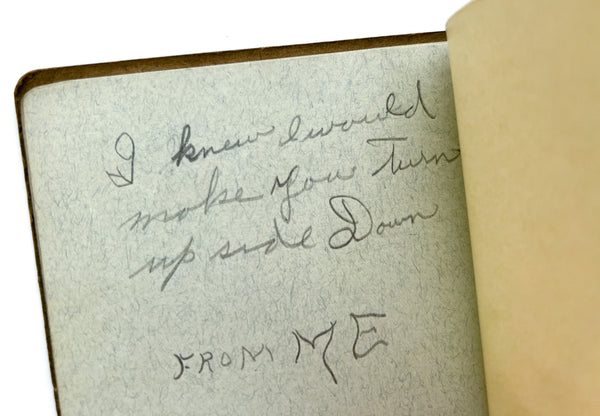 I knew I would
make You turn
up side Down
FROM ME